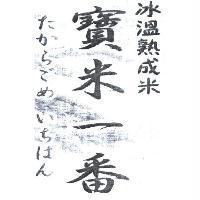 氷温熟成米
寳米一番
たからごめいちばん